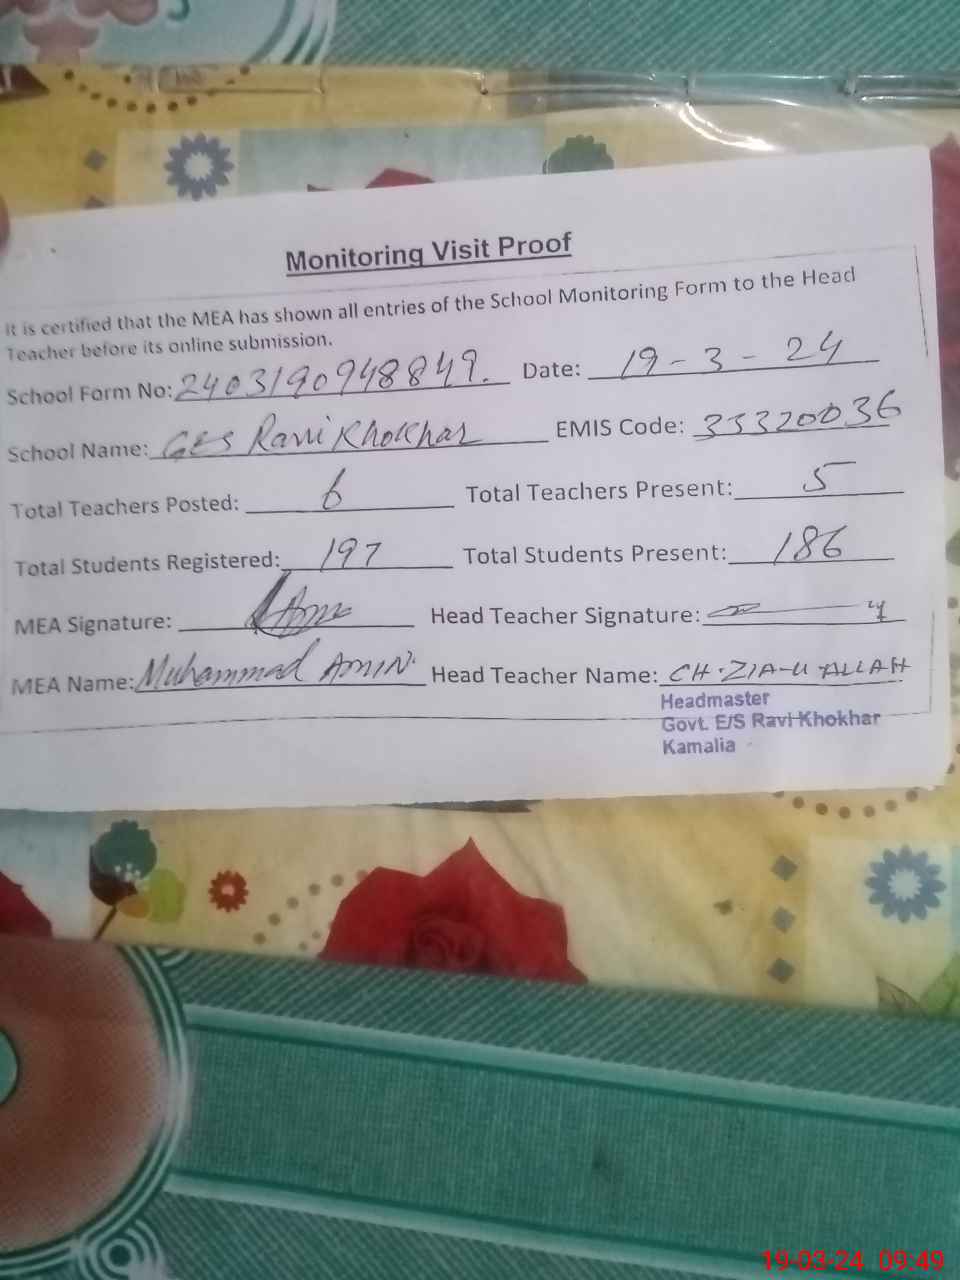 Monitoring Visit Proof
It is certified that the MEA has shown all entries of the School Monitoring Form to the Head
Teacher before its online submission.
School Form No: 2403190948849. Date: 19-3-24
School Name: GES Ravi Khokhar EMIS Code: 33320036
Total Teachers Posted: 6 Total Teachers Present: 5
Total Students Registered: 197 Total Students Present: 186
MEA Signature: Head Teacher Signature:
MEA Name: Muhammad AMIN. Head Teacher Name: CH. ZIA-U-ALLAH
Headmaster
Govt. E/S Ravi Khokhar
Kamalia
19-03-24 09:49